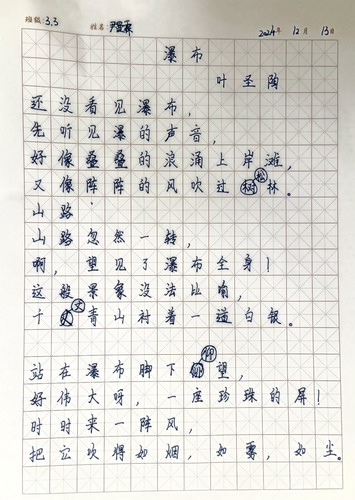 班级:3.3 姓名 2024年12月13日
瀑布
叶圣陶
还没看见瀑布，
先听见瀑的声音，
好像叠叠的浪涌上岸滩，
又像阵阵的风吹过松林。
山路
山路忽然一转，
啊，望见了瀑布全身！
这般景象没法比喻，
千丈青山衬着一道白银。
站在瀑布脚下仰望，
好伟大呀，一座珍珠的屏！
时时来一阵风，
把它吹得如烟，如雾，如尘。